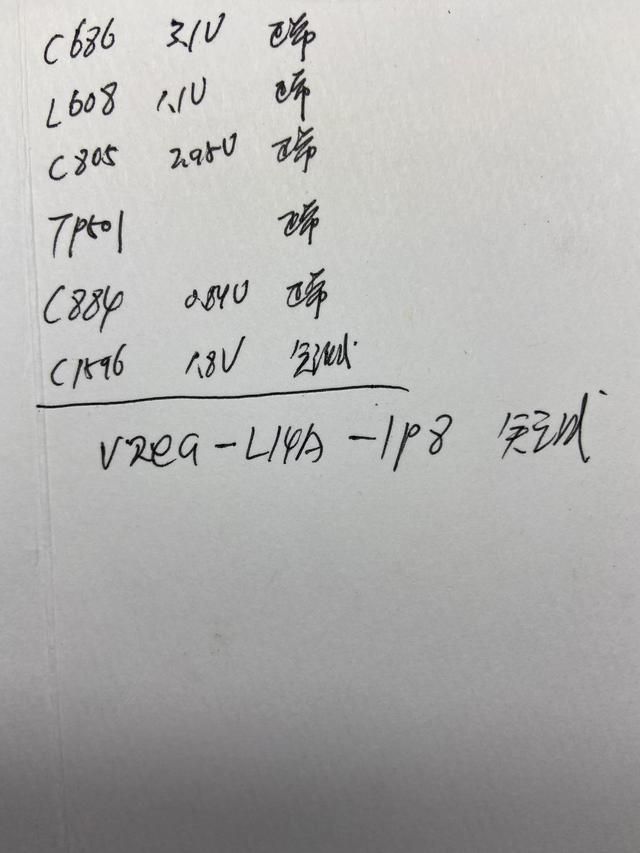 C686 3.1V 正常
L608 1.1V 正常
C805 2.95V 正常
TP501 正常
C884 0.84V 正常
C1596 1.8V
VREG-L14A-1P8